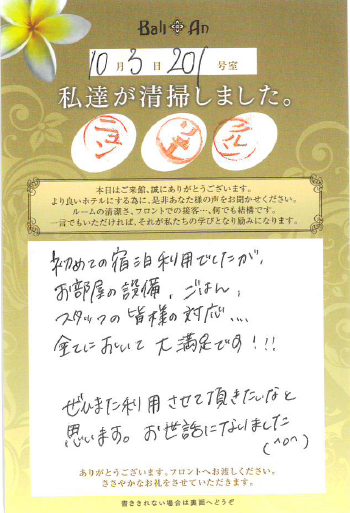 Bali An
10月3日 201号室
私達が清掃しました。
本日はご来館、誠にありがとうございます。
より良いホテルにする為に、是非あなた様の声をお聞かせください。
ルームの清潔さ、フロントでの接客…、何でも結構です。
一言でもいただければ、それが私たちの学びとなり励みになります。
初めての宿泊利用でしたが、
お部屋の設備、ごはん、
スタッフの皆様の対応....
全てにおいて大満足です!!!
ぜひまた利用させて頂きたいなと
思います。お世話になりました
(^o^)
ありがとうございます。フロントへお渡しください。
ささやかなお礼をさせていただきます。
書ききれない場合は裏面へどうぞ